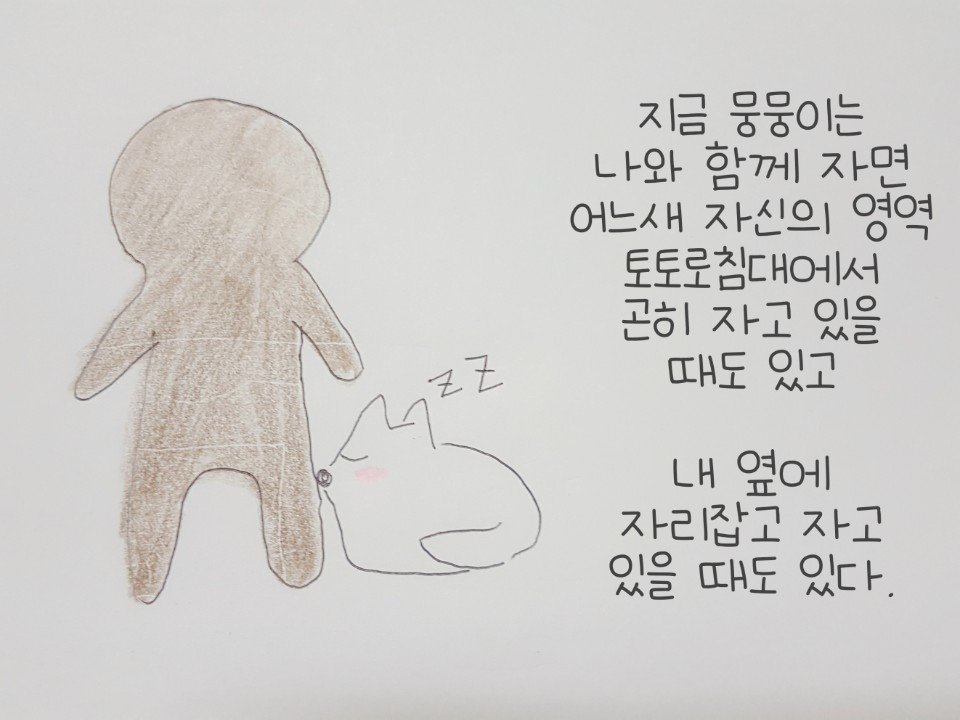 zz
지금 뭉뭉이는
나와 함께 자면
어느새 자신의 영역
토토로침대에서
곤히 자고 있을
때도 있고
내 옆에
자리잡고 자고
있을 때도 있다.